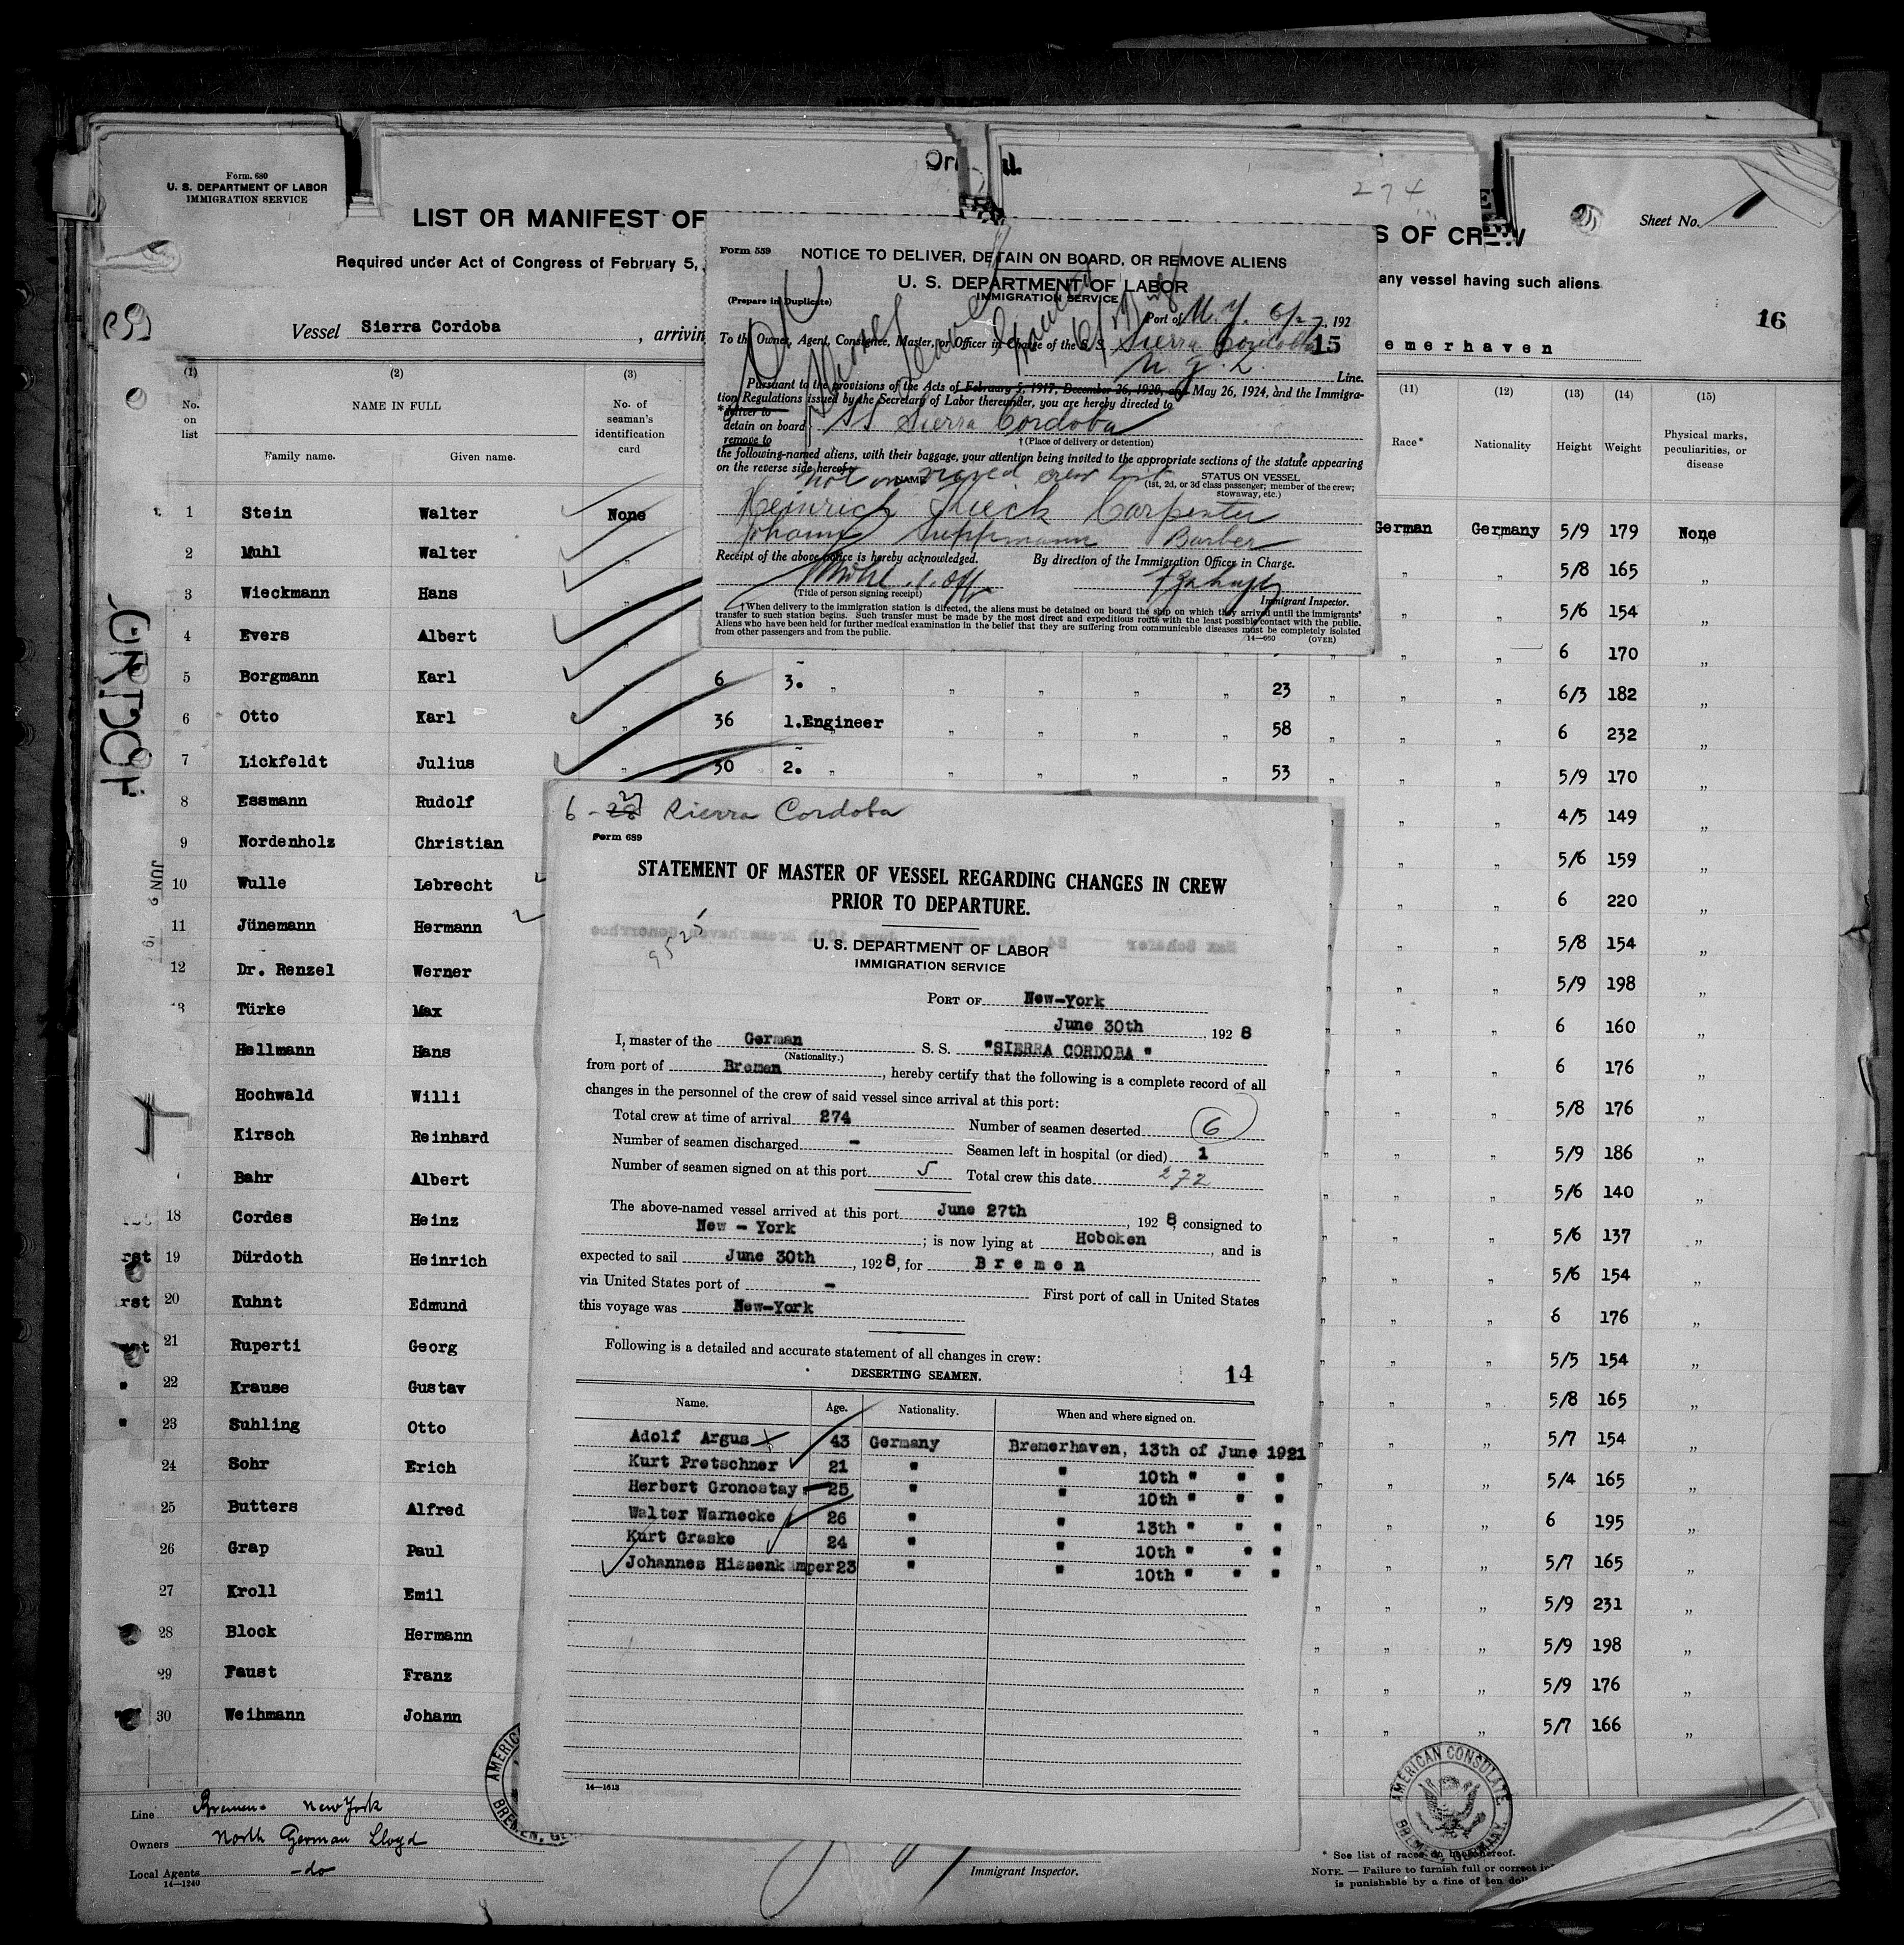 Form. 680
U. S. DEPARTMENT OF LABOR
IMMIGRATION SERVICE
LIST OR MANIFEST OF
S OF CREW
Sheet No. 1
274
Required under Act of Congress of February 5,
any vessel having such aliens
16
Vessel Sierra Cordoba, arrivin
emerhaven
(1) (2) (3) (11) (12) (13) (14) (15)
No. on list
NAME IN FULL
Family name. Given name.
No. of seaman's identification card
Race* Nationality Height Weight Physical marks, peculiarities, or disease
1 Stein Walter None German Germany 5/9 179 None
2 Muhl Walter " " " 5/8 165 "
3 Wieckmann Hans " " " 5/6 154 "
4 Evers Albert " " " 6 170 "
5 Borgmann Karl " 6 3. " " " " " 23 " " " 6/3 182 "
6 Otto Karl " 36 1.Engineer " " " " 58 " " " 6 232 "
7 Lickfeldt Julius " 30 2. " " " " " 53 " " " 5/9 170 "
8 Essmann Rudolf " " 4/5 149 "
9 Nordenholz Christian " " 5/6 159 "
10 Wulle Lebrecht " " 6 220 "
11 Jünemann Hermann " " 5/8 154 "
12 Dr. Renzel Werner " " 5/9 198 "
3 Türke Max " " 6 160 "
Hellmann Hans " " 6 176 "
Hochwald Willi " " 5/8 176 "
Kirsch Reinhard " " 5/9 186 "
Bahr Albert " " 5/6 140 "
18 Cordes Heinz " " 5/6 137 "
rst 19 Dürdoth Heinrich " " 5/6 154 "
rst 20 Kuhnt Edmund " " 6 176 "
21 Ruperti Georg " " 5/5 154 "
" 22 Krause Gustav " " 5/8 165 "
" 23 Suhling Otto " " 5/7 154 "
24 Sohr Erich " " 5/4 165 "
25 Butters Alfred " " 6 195 "
26 Grap Paul " " 5/7 165 "
27 Kroll Emil " " 5/9 231 "
28 Block Hermann " " 5/9 198 "
29 Faust Franz " " 5/9 176 "
30 Weihmann Johann " " 5/7 166 "
JUN 9
Line Bremen - New York
Owners North German Lloyd
Local Agents -do
14—1240
Immigrant Inspector.
AMERICAN CONSULATE
BREMEN, GERMANY.
* See list of races on back hereof.
NOTE. — Failure to furnish full or correct in
is punishable by a fine of ten doll
Form 559
NOTICE TO DELIVER, DETAIN ON BOARD, OR REMOVE ALIENS
U. S. DEPARTMENT OF LABOR
IMMIGRATION SERVICE
(Prepare in Duplicate)
Port of N.Y. 6/27, 192
To the Owner, Agent, Consignee, Master, or Officer in Charge of the S. S. Sierra Cordoba
15
N. G. L. Line.
Pursuant to the provisions of the Acts of February 5, 1917, December 26, 1920, and May 26, 1924, and the Immigra-
tion Regulations issued by the Secretary of Labor thereunder, you are hereby directed to
* deliver to
detain on board
remove to
SS Sierra Cordoba
† (Place of delivery or detention)
the following-named aliens, with their baggage, your attention being invited to the appropriate sections of the statute appearing
on the reverse side hereof:
not on visaed crew list
NAME
STATUS ON VESSEL
(1st, 2d, or 3d class passenger; member of the crew;
stowaway, etc.)
Heinrich Carpenter
Johann Suppmann Barber
Receipt of the above notice is hereby acknowledged. By direction of the Immigration Officer in Charge.
Mühl. 1. Off.
(Title of person signing receipt)
Immigrant Inspector.
† When delivery to the immigration station is directed, the aliens must be detained on board the ship on which they arrived until the immigrants'
transfer to such station begins. Such transfer must be made by the most direct and expeditious route with the least possible contact with the public.
Aliens who have been held for further medical examination in the belief that they are suffering from communicable diseases must be completely isolated
from other passengers and from the public.
14—660 (OVER)
6 - 27 Sierra Cordoba
Form 689
STATEMENT OF MASTER OF VESSEL REGARDING CHANGES IN CREW
PRIOR TO DEPARTURE.
9525
U. S. DEPARTMENT OF LABOR
IMMIGRATION SERVICE
PORT OF New-York
June 30th, 1928
I, master of the German S. S. "SIERRA CORDOBA"
(Nationality.)
from port of Bremen, hereby certify that the following is a complete record of all
changes in the personnel of the crew of said vessel since arrival at this port:
Total crew at time of arrival 274 Number of seamen deserted 6
Number of seamen discharged - Seamen left in hospital (or died) 1
Number of seamen signed on at this port 5 Total crew this date 272
The above-named vessel arrived at this port June 27th, 1928, consigned to
New - York; is now lying at Hoboken, and is
expected to sail June 30th, 1928, for Bremen
via United States port of - First port of call in United States
this voyage was New-York
Following is a detailed and accurate statement of all changes in crew:
DESERTING SEAMEN.
14
Name. Age. Nationality. When and where signed on.
Adolf Argus 43 Germany Bremerhaven, 13th of June 1921
Kurt Pretschner 21 " " 10th " " "
Herbert Gronostay 25 " " 10th " " "
Walter Warnecke 26 " " 13th " " "
Kurt Graske 24 " " 10th " " "
Johannes Hissenkämper 23 " " 10th " " "
14—1613